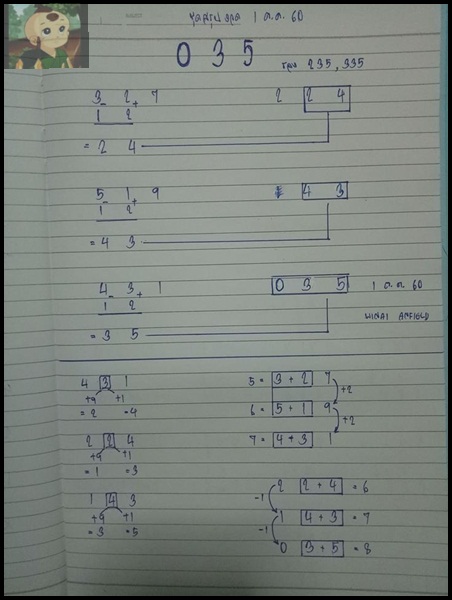 1 ต.ค. 60
0 3 5
235, 335
3 - 2 + 7
1 2
= 2 4
2 2 4
5 - 1 + 9
1 2
= 4 3
4 3
4 - 3 + 1
1 2
= 3 5
0 3 5
1 ต.ค. 60
4 3 1
+9 +1
= 2 = 4
2 2 4
+9 +1
= 1 = 3
1 4 3
+9 +1
= 3 = 5
5 = 3 + 2 7
+2
6 = 5 + 1 9
+2
7 = 4 + 3 1
2 2 + 4 = 6
-1
1 4 + 3 = 7
-1
0 3 + 5 = 8